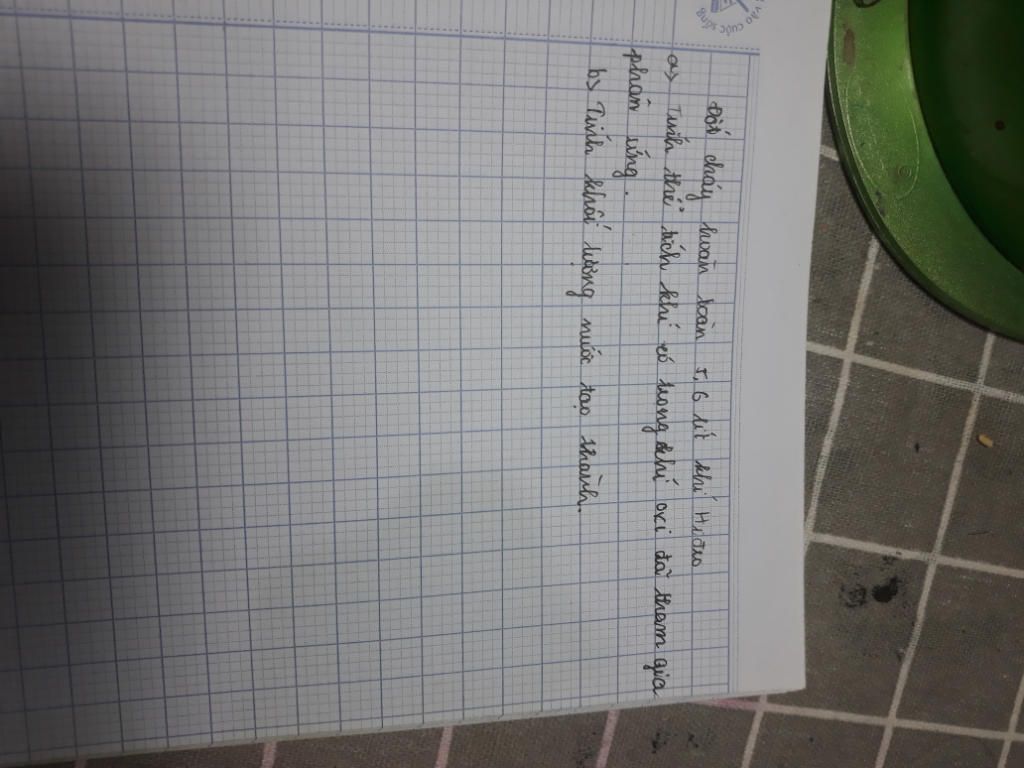 vào cuộc sống
Đốt cháy hoàn toàn 5,6 lít khí H₂ vào
a) Tính thể tích khí có trong khí oxi đã tham gia
phản ứng.
b) Tính khối lượng nước tạo thành.